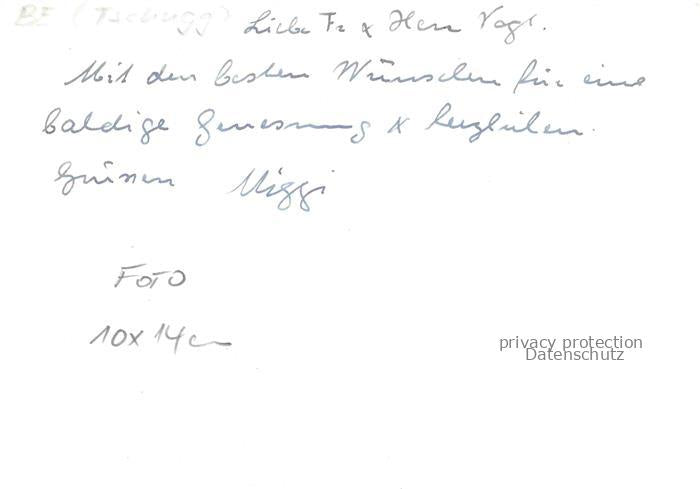 BE (Tschugg) Liebe Fr & Herr Vogt.
Mit den besten Wünschen für eine
baldige Genesung & herzlichen
Grüssen Miggi
FOTO
10x14cm
privacy protection
Datenschutz